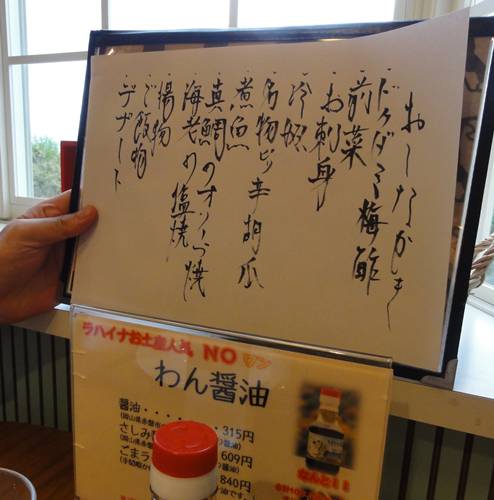 おしながき
・ドクダミ梅酢
・前菜
・お刺身
・冷奴
・名物ピリ辛胡瓜
・煮魚
・真鯛のオリーブ焼
・海老の塩焼
・揚物
・ご飯物
・デザート
ラハイナお土産人気 NO ワン
わん醤油
醤油・・・・・・・・315円
さしみ
ごま
609円
840円
なんと!!